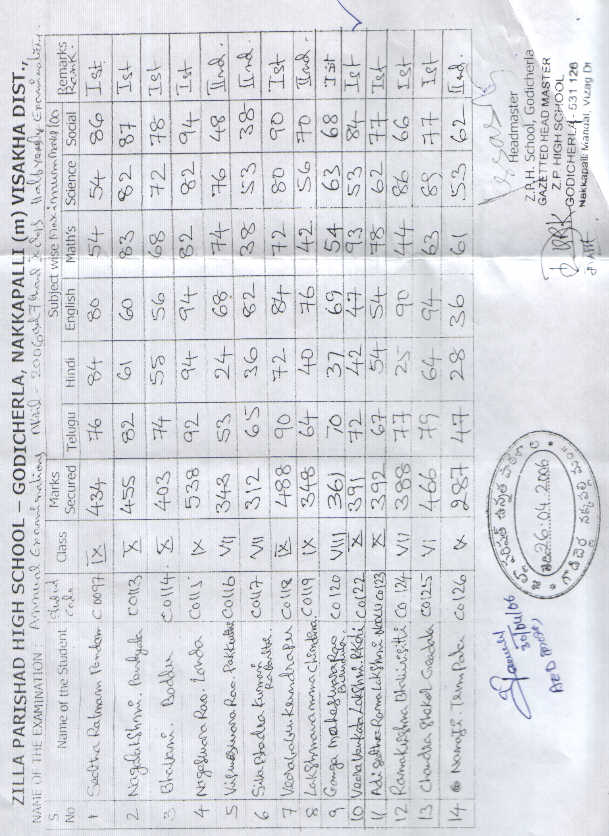 ZILLA PARISHAD HIGH SCHOOL – GODICHERLA, NAKKAPALLI (m) VISAKHA DIST.,
NAME OF THE EXAMINATION: Annual Examinations 2006
S No Name of the Student Student code Class Marks Secured Subject wise maximum marks 100 Remarks Rank.
Telugu Hindi English Math's Science Social
1 Seetha Ratnam Pandom C0097 IX 434 76 84 80 54 54 86 Ist
2 Nagalakshmi. C0113 X 455 82 61 60 83 82 87 Ist
3 Bravani. Boddu C0114 X 403 74 55 56 68 72 78 Ist
4 Nageswara Rao. Landa C0115 IX 538 92 94 94 82 82 94 Ist
5 Vigneswara Rao. C0116 VII 343 53 24 68 74 76 48 IInd.
6 Siva Bhadra Kumari C0117 VII 312 65 36 82 38 53 38 IInd.
7 Veerababu C0118 IX 488 90 72 84 72 80 90 Ist
8 Lakshmanamma C0119 IX 348 64 40 76 42 56 70 IInd.
9 Ganga Maheswara Rao C0120 VIII 361 70 37 69 54 63 68 Ist
10 Veera Venkata Lakshmi C0122 X 391 72 42 47 93 53 84 Ist
11 Adi Seetha Rama Lakshmi C0123 X 392 67 54 54 78 62 77 Ist
12 Ramakrishna C0124 VII 388 77 25 90 44 86 66 Ist
13 Chandra Shekar C0125 VI 466 79 64 94 63 89 77 Ist
14 Namoji. C0126 IX 287 47 28 36 61 53 62 IInd.
Headmaster
Z.P.H. School, Godicherla
GAZETTED HEAD MASTER
Z P HIGH SCHOOL
GODICHERLA 531 126
Nakkapalli Mandal, Vizag Dt
26.04.2006
30/04/06